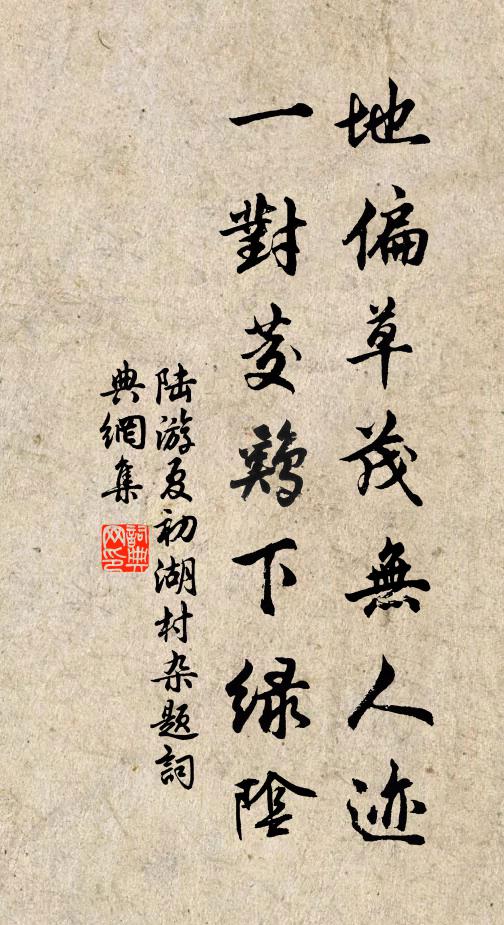 地偏草茂無人迹
一對茭鷄下緑陰
陆游夏初湖村杂题詞
典網集
詞典
网印